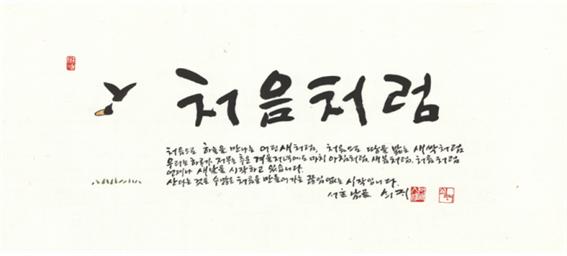 처음처럼
처음으로 하늘을 만나는 어린 새처럼, 처음으로 땅을 밟는 새싹처럼
우리는 하루가 저무는 추운 겨울저녁에도 마치 아침처럼, 새봄처럼, 처음처럼
언제나 새날을 시작하고 있습니다.
산다는 것은 수많은 처음을 만들어가는 끊임없는 시작입니다.